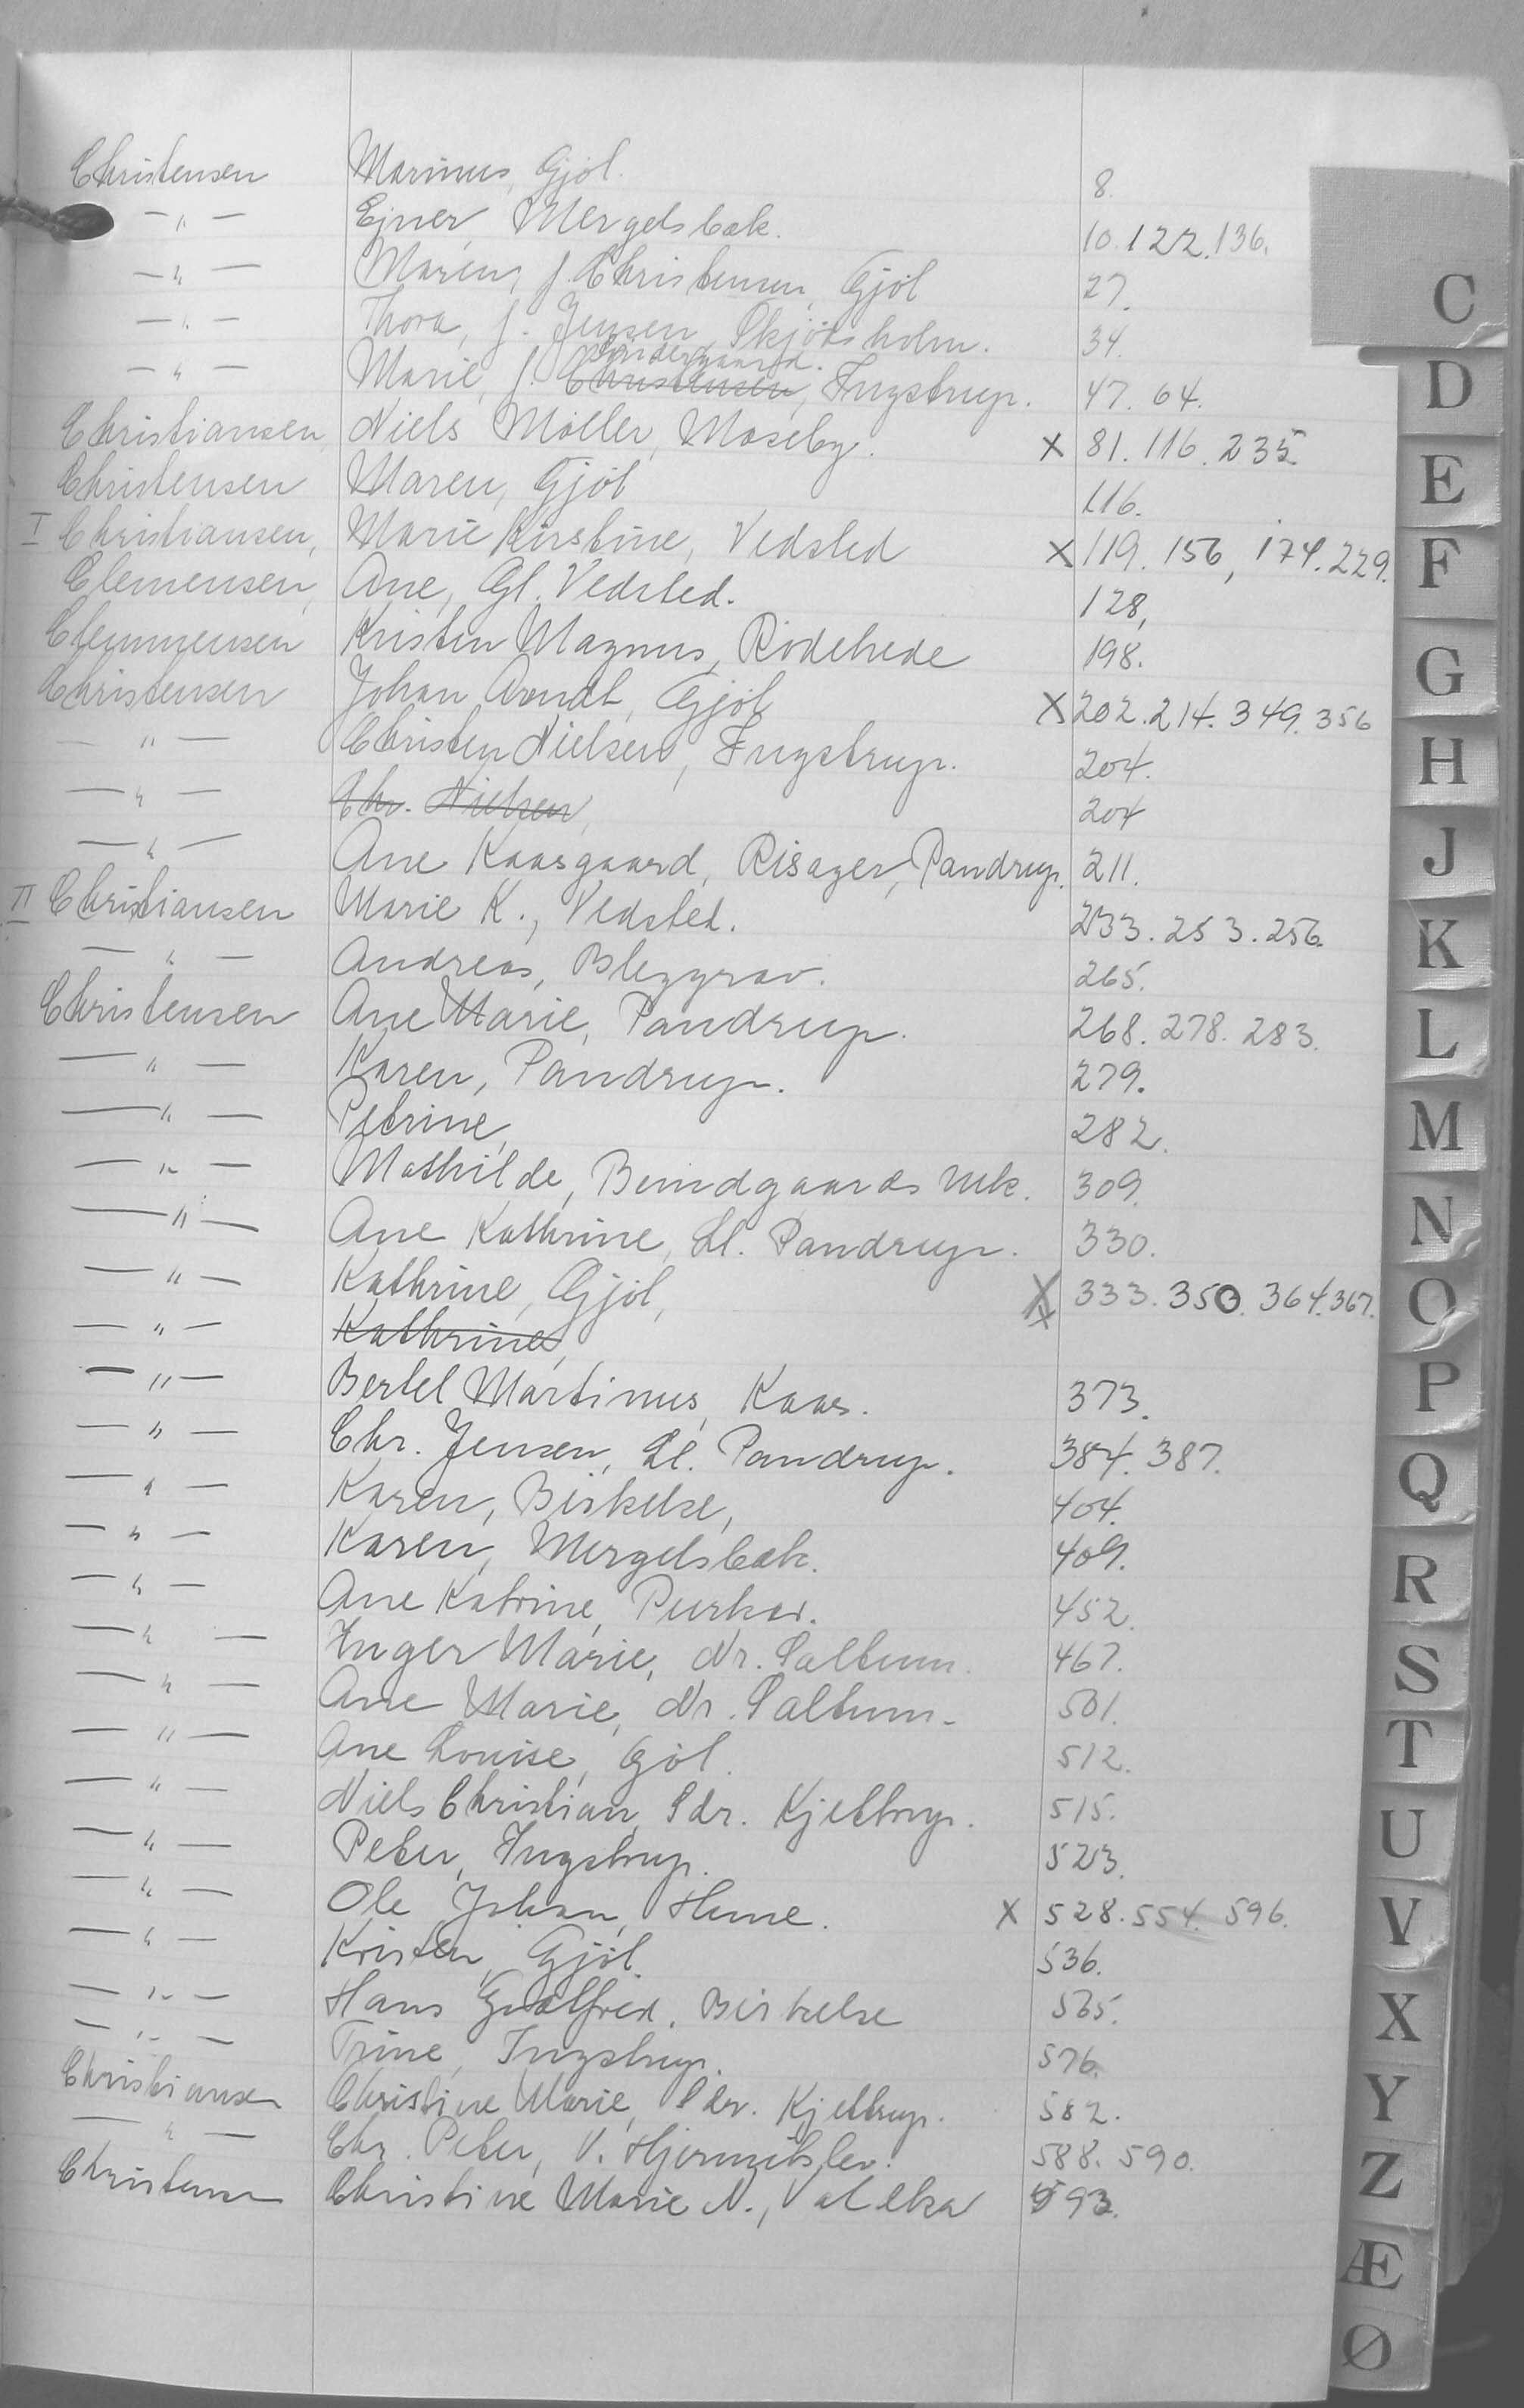 Christensen Marinus, Gjøl. 8.
— " — Ejner, Mergelsbæk. 10. 122. 136.
— " — Maren, f. Christensen, Gjøl 27.
— " — Thora, f. Jensen, Skjødsholm. 34.
Søndergaard.
— " — Marie, f. Christensen, Ingstrup. 47. 64.
Christiansen, Niels Møller, Moseby. X 81. 116. 235.
Christensen Maren, Gjøl 116.
I Christiansen, Marie Kirstine, Vedsted X 119. 156, 174. 229.
Clemensen, Ane, Gl. Vedsted. 128,
Clemmensen Kristen Magnus, Rødehede 198.
Christensen Johan Arndt, Gjøl X 202. 214. 349. 356
— " — Christen Nielsen, Ingstrup. 204.
— " — Chr. Nielsen, 204
— " — Ane Kaasgaard, Risager, Pandrup. 211.
II Christiansen Marie K., Vedsted. 233. 253. 256.
— " — Andreas, Bleggrav. 265.
Christensen Ane Marie, Pandrup. 268. 278. 283.
— " — Karen, Pandrup. 279.
— " — Petrine, 282.
— " — Mathilde, Bundgaards Mk. 309.
— " — Ane Kathrine, Ll. Pandrup. 330.
— " — Kathrine, Gjøl, X 333. 350. 364. 367.
— " — Kathrine,
— " — Bertel Martinus, Kaas. 373.
— " — Chr. Jensen, Ll. Pandrup. 384. 387.
— " — Karen, Birkelse, 404.
— " — Karen, Mergelsbæk. 409.
— " — Ane Katrine, Purkær. 452.
— " — Inger Marie, Nr. Saltum. 467.
— " — Ane Marie, Nr. Saltum. 501.
— " — Ane Louise, Gøl. 512.
— " — Niels Christian, Sdr. Kjettrup. 515.
— " — Peter, Ingstrup. 523.
— " — Ole Johan, Hune. X 528. 554. 596.
— " — Kristen, Gjøl. 536.
— " — Hans Godtfred, Birkelse 565.
— " — Trine, Ingstrup. 576.
Christiansen Christine Marie, Sdr. Kjettrup. 582.
— " — Chr. Peter, V. Hjermitslev. 588. 590.
Christensen Christine Marie N., 593.
C
D
E
F
G
H
J
K
L
M
N
O
P
Q
R
S
T
U
V
X
Y
Z
Æ
Ø